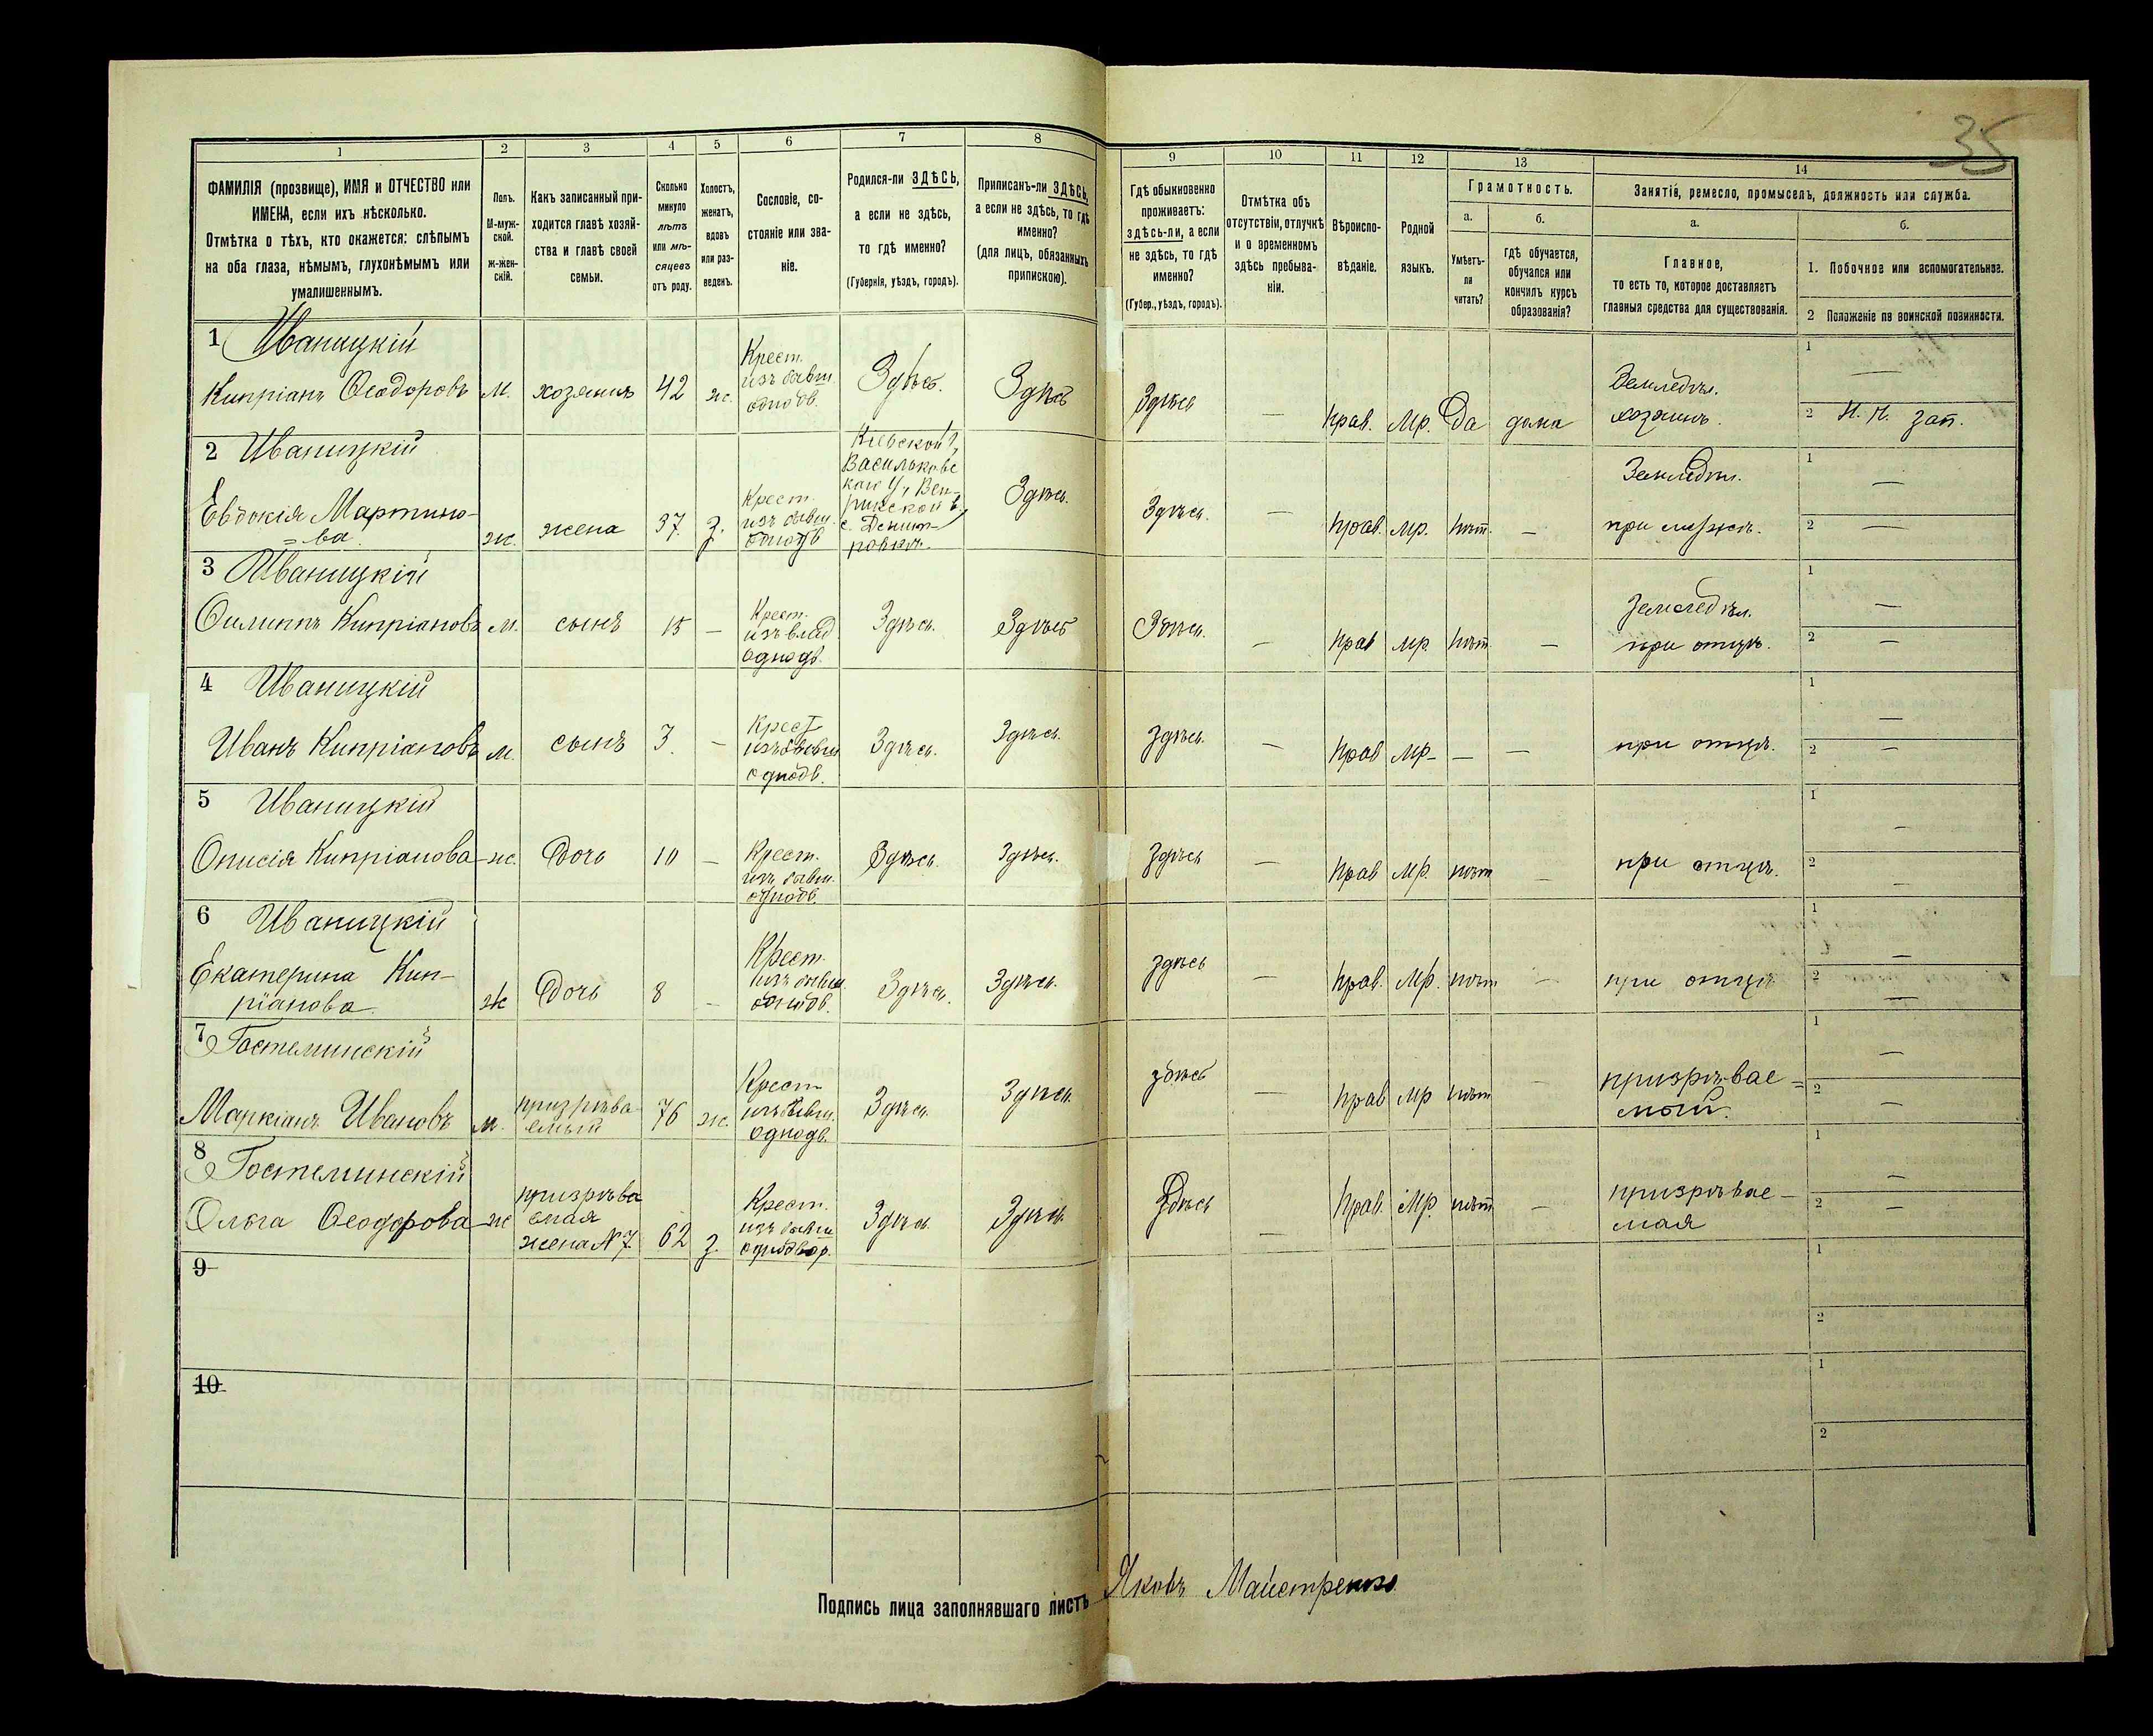 35
1 2 3 4 5 6 7 8 9 10 11 12 13 14
ФАМИЛІЯ (прозвище), ИМЯ и ОТЧЕСТВО или
ИМЕНА, если ихъ нѣсколько.
Отмѣтка о тѣхъ, кто окажется: слѣпымъ
на оба глаза, нѣмымъ, глухонѣмымъ или
умалишеннымъ.
Полъ.
М-муж-
ской.
ж-жен-
скій.
Какъ записанный при-
ходится главѣ хозяй-
ства и главѣ своей
семьи.
Сколько
минуло
лѣтъ
или мѣ-
сяцевъ
отъ роду.
Холостъ,
женатъ,
вдовъ
или раз-
веденъ.
Сословіе, со-
стояніе или зва-
ніе.
Родился-ли ЗДѢСЬ,
а если не здѣсь,
то гдѣ именно?
(Губернія, уѣздъ, городъ).
Приписанъ-ли ЗДѢСЬ,
а если не здѣсь, то гдѣ
именно?
(для лицъ, обязанныхъ
припискою).
Гдѣ обыкновенно
проживаетъ:
здѣсь-ли, а если
не здѣсь, то гдѣ
именно?
(Губер., уѣздъ, городъ).
Отмѣтка объ
отсутствіи, отлучкѣ
и о временномъ
здѣсь пребыва-
ніи.
Вѣроиспо-
вѣданіе.
Родной
языкъ.
Грамотность.
а.
Умѣетъ-
ли
читать?
б.
гдѣ обучается,
обучался или
кончилъ курсъ
образованія?
Занятіе, ремесло, промыселъ, должность или служба.
а.
Главное,
то есть то, которое доставляетъ
главныя средства для существованія.
б.
1. Побочное или вспомогательное.
2 Положеніе по воинской повинности.
1 Иваницкій
Кипріанъ Ѳеодоровъ
м.
хозяинъ
42
ж.
Крест.
изъ бывш.
однодв.
Здѣсь.
Здѣсь
Здѣсь
—
прав.
мр.
Да
дома
Земледѣл.
хозяинъ.
1 —
2 Н. Ч. зап.
2 Иваницкій
Евдокія Мартино-
=ва.
ж.
жена
37.
з.
Крест.
изъ бывш.
однодв
Кіевской г,
Васильковс
каго у,
с.
Здѣсь.
Здѣсь.
—
прав.
мр.
нѣт.
—
Земледѣл.
при мужѣ.
1 —
2 —
3 Иваницкій
Филиппъ Кипріановъ
м.
сынъ
15
—
Крест.
однодв.
Здѣсь.
Здѣсь
Здѣсь.
—
прав
мр.
нѣт
—
Земледѣл.
при отцѣ.
1 —
2 —
4 Иваницкій
Иванъ Кипріановъ
м.
сынъ
3.
—
Крест
изъ бывш
однодв.
Здѣсь.
Здѣсь.
Здѣсь.
—
прав
мр-
—
—
при отцѣ.
1 —
2 —
5 Иваницкій
Онисія Кипріанова
ж.
Дочь
10
—
Крест.
изъ бывш.
однодв.
Здѣсь.
Здѣсь.
Здѣсь
—
прав
мр.
нѣт
—
при отцѣ.
1 —
2 —
6 Иваницкій
Екатерина Кип-
ріанова.
ж
Дочь
8
—
Крест.
изъ бывш
однодв.
Здѣсь.
Здѣсь.
здѣсь
—
прав.
мр.
нѣт
—
при отцѣ
1 —
2 —
7 Гостеминскій
Маркіанъ Ивановъ
м.
призрѣва
емый
76
ж.
Крест
изъ бывш.
однодв.
Здѣсь.
Здѣсь.
здѣсь
—
прав
мр
нѣт
—
призрѣвае=
мый.
1 —
2 —
8 Гостеминскій
Ольга Ѳеодорова
ж
призрѣва
емая
жена N 7.
62
з.
Крест.
изъ бывш
однодвор.
Здѣсь.
Здѣсь.
Здѣсь
—
прав.
мр.
нѣт
—
призрѣвае-
мая
1 —
2 —
9
1
2
10
1
2
Подпись лица заполнявшаго листъ Яковъ Майстренко